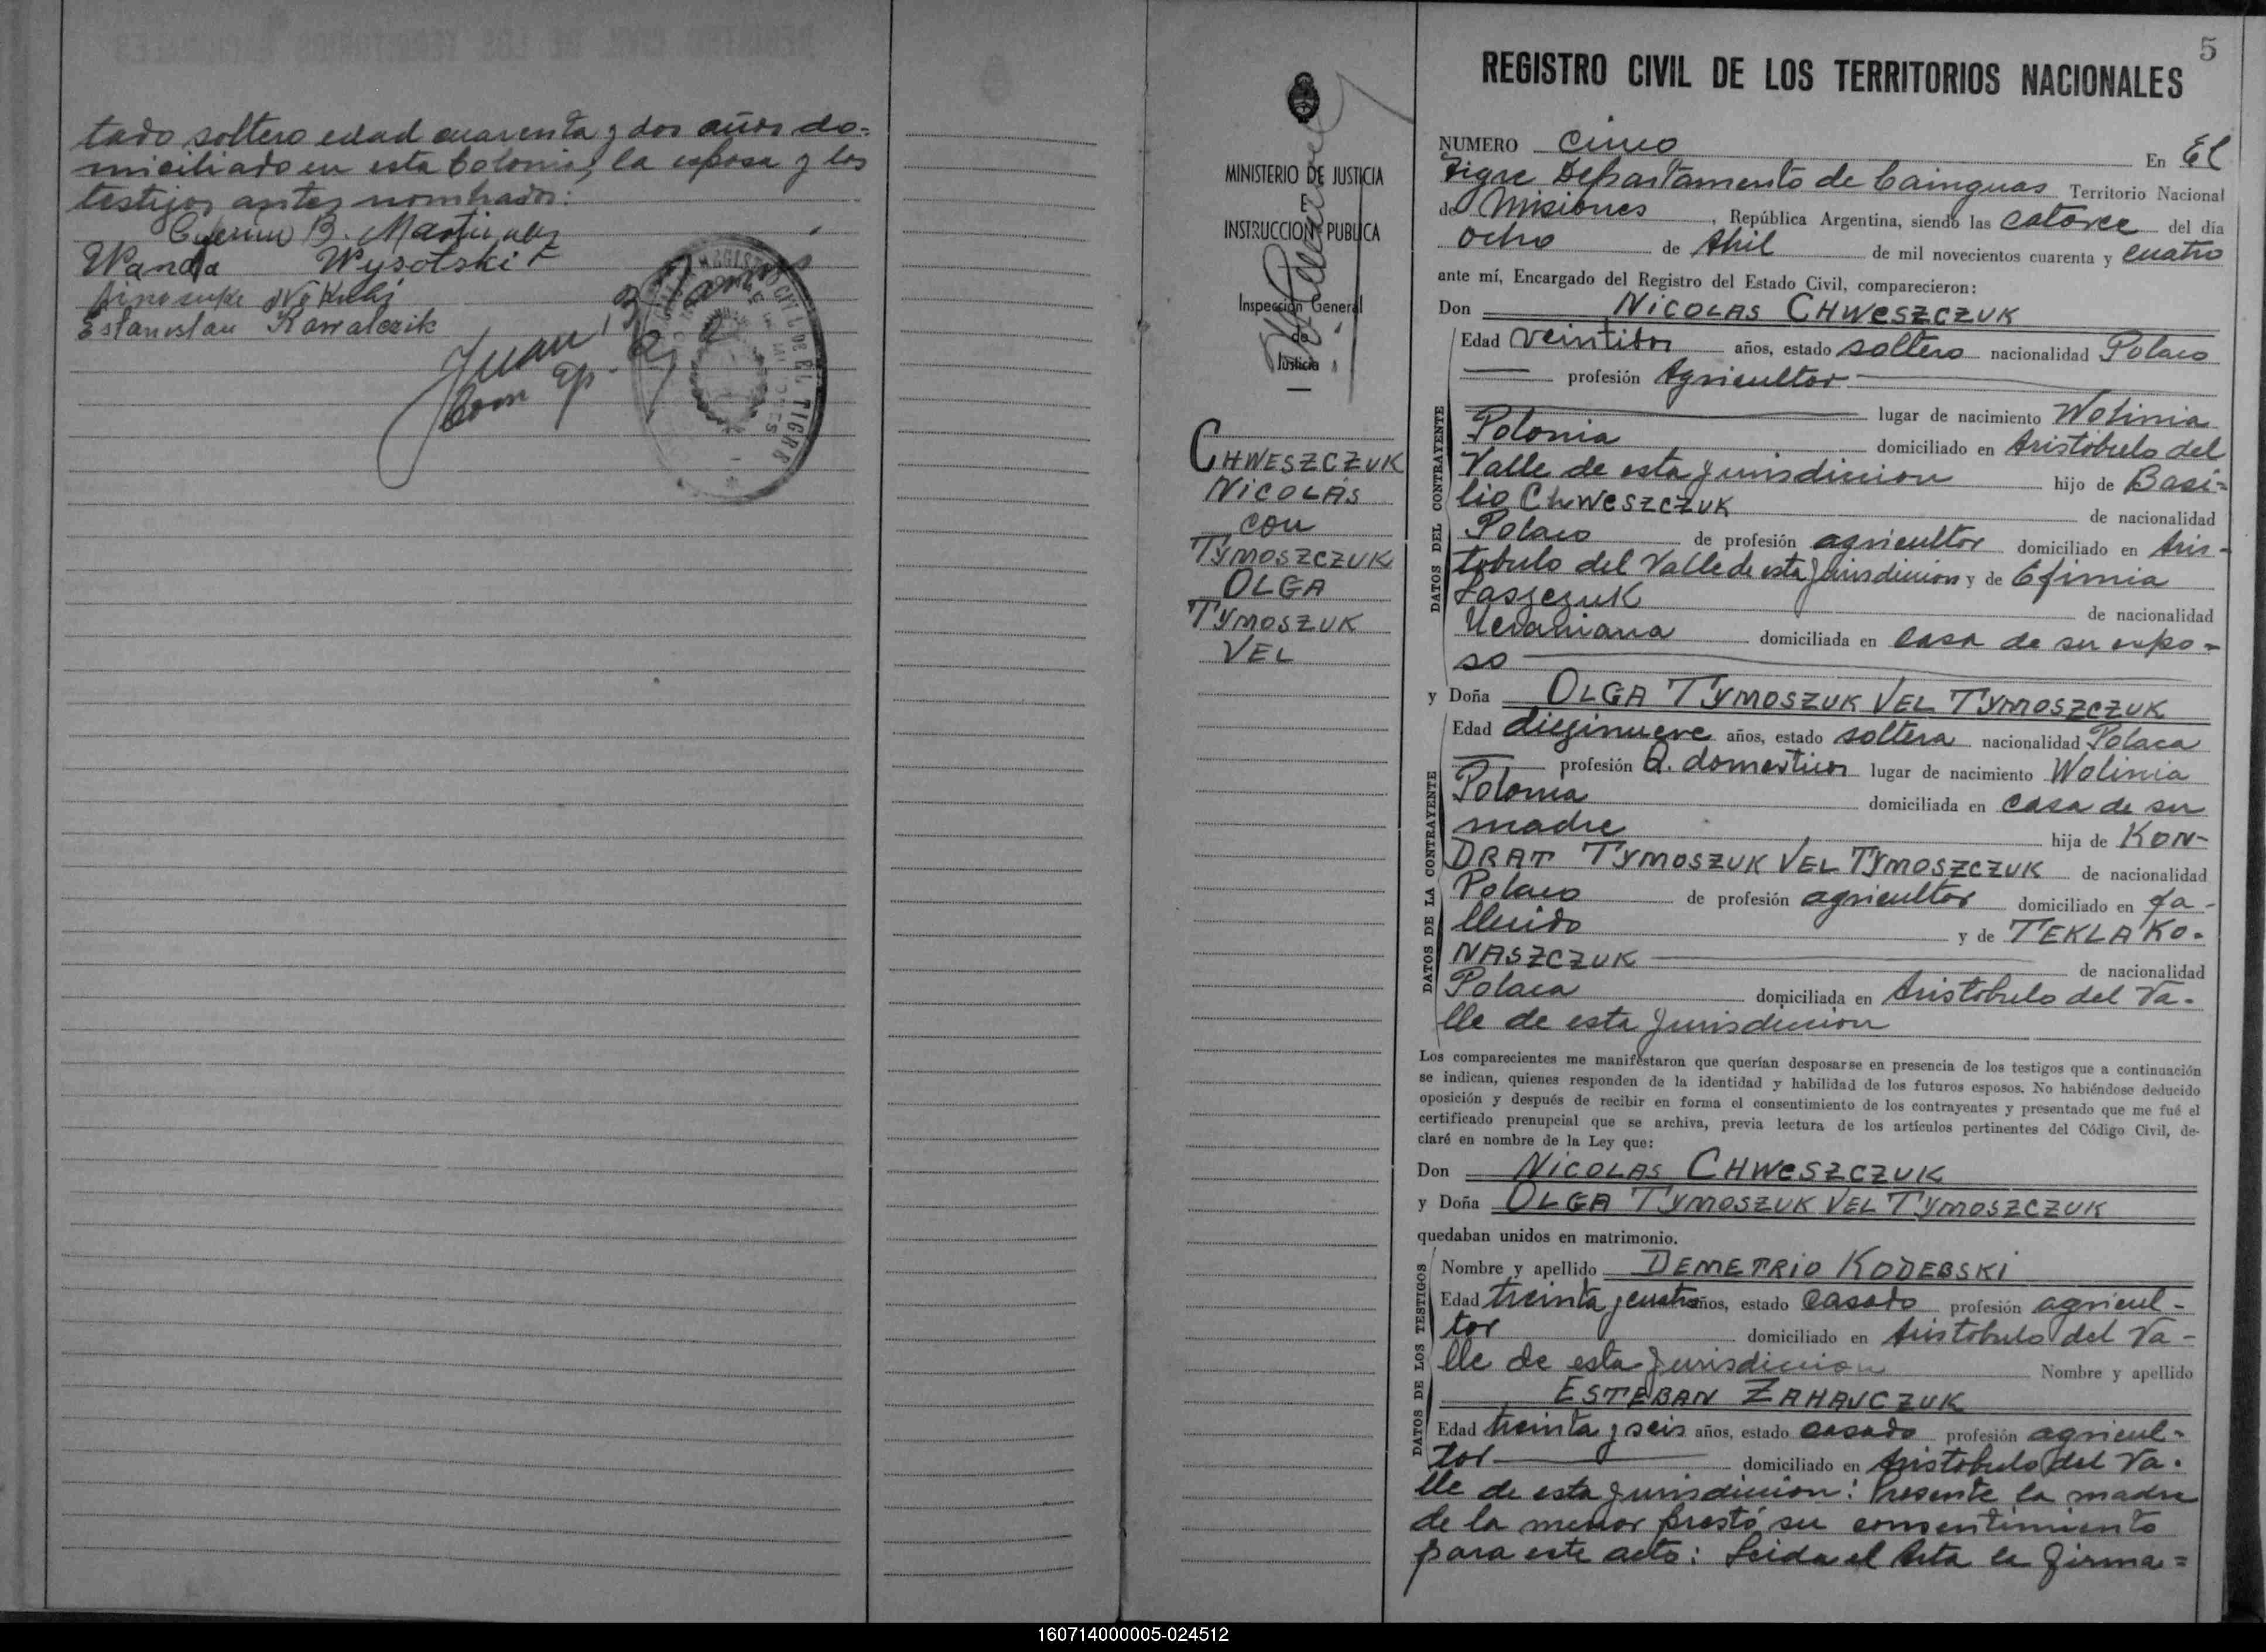 tado soltero edad cuarenta y dos años do=
miciliado en esta Colonia, la esposa y los
testigos antes nombrados:
B. Martinez
Wanda Wysotski
Estanislau Kowalczik
Juan B.
REGISTRO CIVIL DE EL TIGRE
MINISTERIO DE JUSTICIA
E
INSTRUCCION PUBLICA
Inspección General
de
Justicia
CHWESZCZUK
NICOLÁS
con
TYMOSZCZUK
OLGA
TYMOSZUK
VEL
5
REGISTRO CIVIL DE LOS TERRITORIOS NACIONALES
NUMERO Cinco En El
Tigre Departamento de Cainguas Territorio Nacional
de Misiones, República Argentina, siendo las catorce del día
ocho de Abril de mil novecientos cuarenta y cuatro
ante mí, Encargado del Registro del Estado Civil, comparecieron:
Don NICOLAS CHWESZCZUK
DATOS DEL CONTRAYENTE
Edad veintidos años, estado soltero nacionalidad Polaco
profesión Agricultor
lugar de nacimiento Wolinia
Polonia domiciliado en Aristobulo del
Valle de esta Jurisdicion hijo de Basi=
lio CHWESZCZUK de nacionalidad
Polaco de profesión agricultor domiciliado en Aris-
tobulo del Valle de esta Jurisdicion y de Efimia
Laszczuk de nacionalidad
Ucraniana domiciliada en casa de su espo=
so
y Doña OLGA TYMOSZUK VEL TYMOSZCZUK
DATOS DE LA CONTRAYENTE
Edad diezinueve años, estado soltera nacionalidad Polaca
profesión Q. domesticos lugar de nacimiento Wolinia
Polonia domiciliada en casa de su
madre hija de KON-
DRAT TYMOSZUK VEL TYMOSZCZUK de nacionalidad
Polaco de profesión agricultor domiciliado en fa-
llecido y de TEKLA KO-
NASZCZUK de nacionalidad
Polaca domiciliada en Aristobulo del Va-
lle de esta Jurisdiccion
Los comparecientes me manifestaron que querían desposarse en presencia de los testigos que a continuación
se indican, quienes responden de la identidad y habilidad de los futuros esposos. No habiéndose deducido
oposición y después de recibir en forma el consentimiento de los contrayentes y presentado que me fué el
certificado prenupcial que se archiva, previa lectura de los artículos pertinentes del Código Civil, de-
claré en nombre de la Ley que:
Don NICOLAS CHWESZCZUK
y Doña OLGA TYMOSZUK VEL TYMOSZCZUK
quedaban unidos en matrimonio.
DATOS DE LOS TESTIGOS
Nombre y apellido DEMETRIO KODEBSKI
Edad treinta y cuatro años, estado casado profesión agricul-
tor domiciliado en Aristobulo del Va-
lle de esta Jurisdicion Nombre y apellido
ESTEBAN ZAHAUCZUK
Edad treinta y seis años, estado casado profesión agricul-
tor domiciliado en Aristobulo del Va-
lle de esta Jurisdicion: Presente la madre
de la menor prestó su consentimiento
para este acto: Leida el Acta la firma=
160714000005-024512